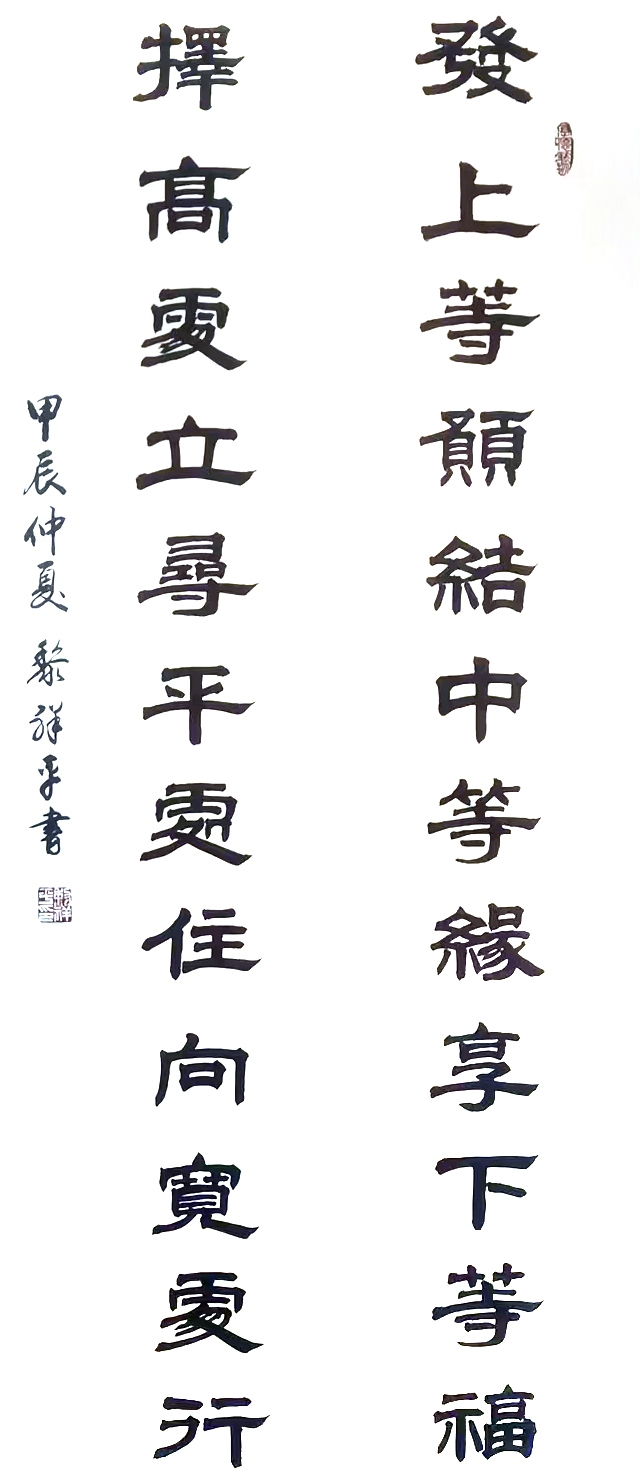 發上等願結中等緣享下等福
擇高處立尋平處住向寬處行
甲辰仲夏 黎祥平書